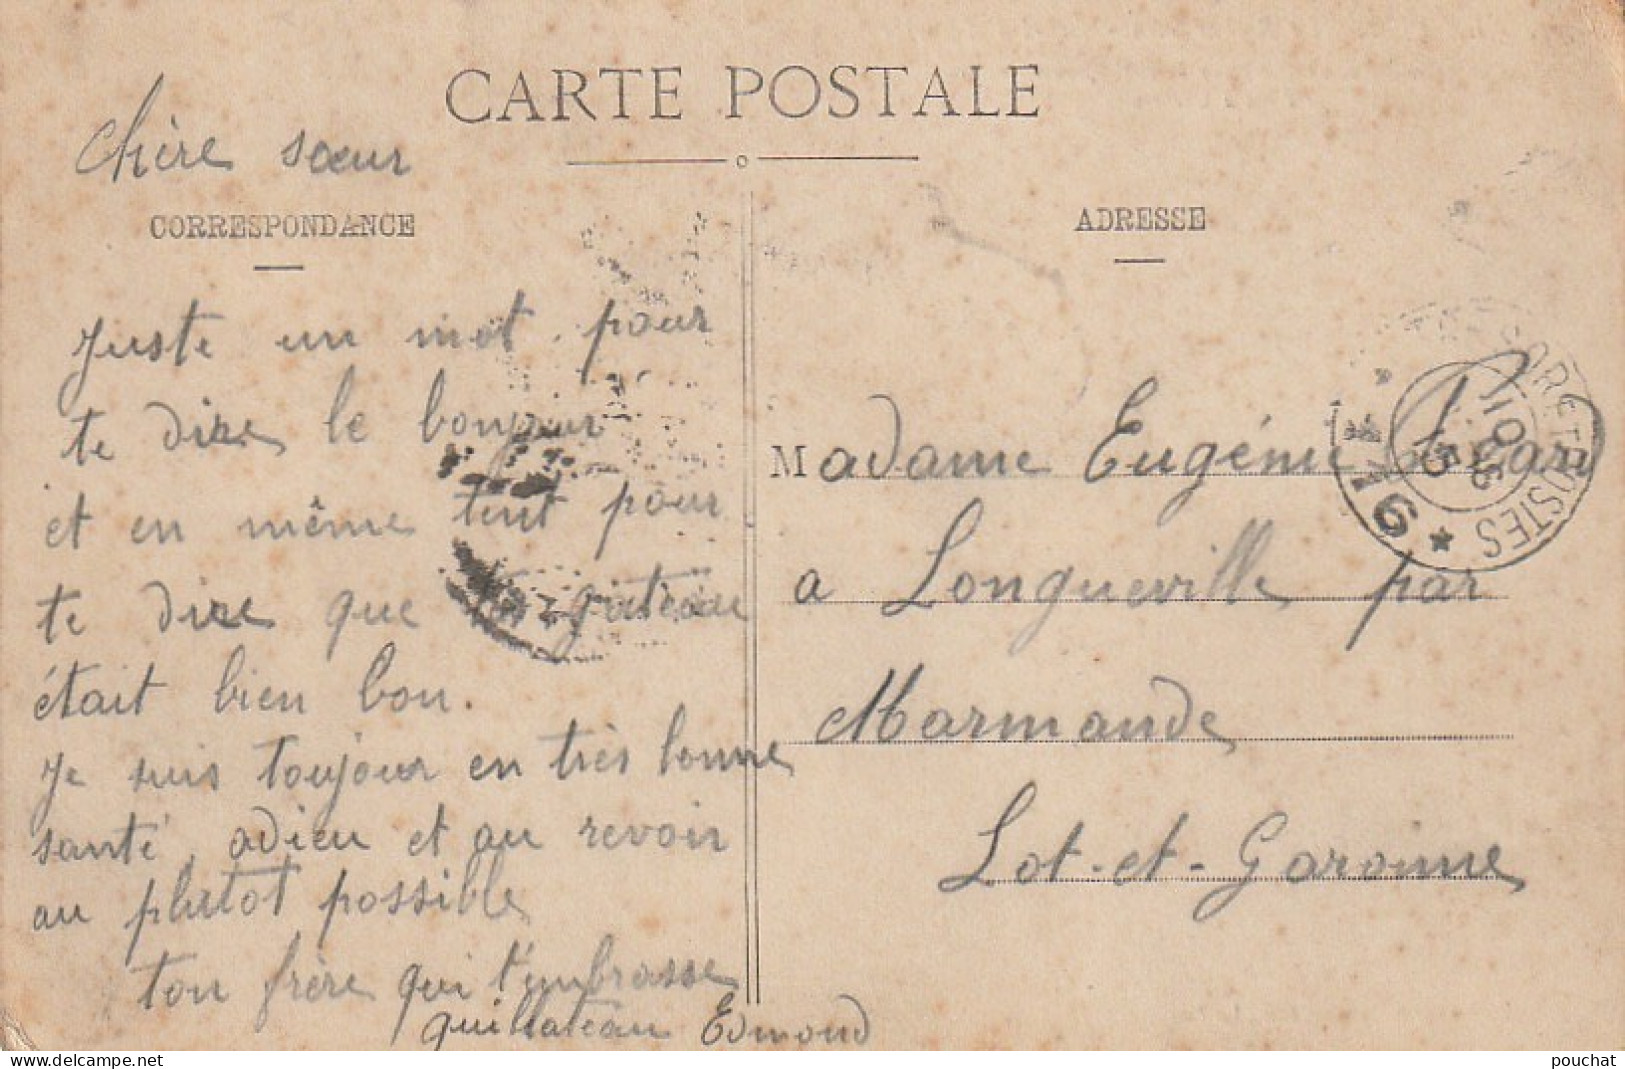 CARTE POSTALE
Chère sœur
CORRESPONDANCE
Juste un mot pour
te dire le bonjour
et en même tent pour
te dire que gateau
était bien bon.
Je suis toujour en très bonne
santé, adieu et au revoir
au plutot possible
ton frère qui t'embrasse
Edmond
ADRESSE
Madame Eugénie
a Longueville par
Marmande
Lot-et-Garonne
POSTES
delcampe.net
pouchat